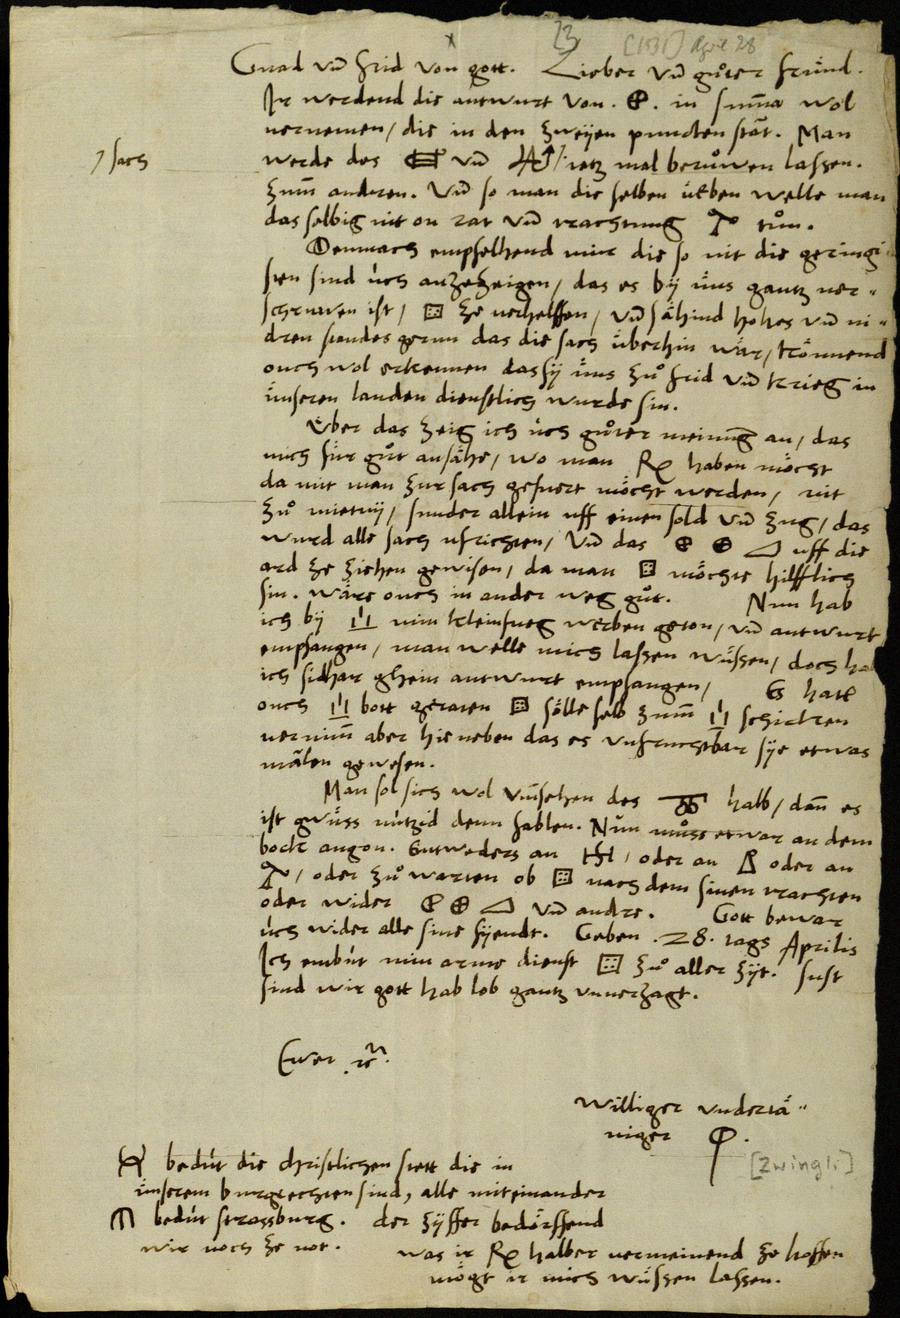 23 [1531] April 28
Gnad vnd frid von gott. Lieber vnd gůter fründ.
Ir werdend die antwurt von . . in summa wol
vernemen / die in den zweyen puncten stat. Man
/ sach
werde des vnd / ietz mal berůwen lassen.
Zum anderen. Vnd so man die selben üben welle man
das selbig nit on rat vnd trachtung tůn.
Demnach empfelhend mir die so nit die geringi
sten sind üch anzezeigen / das es by üns gantz ver-
schruwen ist / ze verhelffen / vnd sähind hohes vnd ni-
dren standes gernn das die sach überhin wär / könnend
ouch wol erkennen das sy üns zů frid vnd krieg in
ünseren landen dienstlich wurde sin.
Über das zeig ich üch gůter meinung an / das
mich für gůt ansähe / wo man haben möcht
da mit man zur sach gefuert möcht werden / nit
zů / sunder allein uff einen sold vnd zug / das
wurd alle sach ufrichten / vnd das uff die
ard ze ziehen gewisen / da man möchte hilfflich
sin. wäre ouch in ander weg gůt. Nun hab
ich by min kleinfueg werben geton / vnd antwurt
empfangen / man welle mich lassen wüssen / doch hab
ich sidhar ghein antwurt empfangen / hatt
ouch bott geraten sölle selb zum schicken
vernimm aber hie neben das es vnfruchtbar sye etwas
malen gewesen.
Man sol sich wol vmsehen des halb / dann es
ist gwüss nützid denn fablen. Nun můss etwar an dem
bock angon. Entweders an / oder an oder an
/ oder zů warten ob nach dem sinen trachten
oder wider vnd andre. Gott bewar
üch wider alle sine fyende. Geben .28. tags Aprilis
Ich embüt min arme dienst zů aller zyt. sust
sind wir gott hab lob gantz vnuerzagt.
Ewer
williger vndertä-
niger .
[Zwingli]
bedüt die christlichen stett die in
ünserem burgrechten sind, alle miteinander
bedüt strassburg. der zyffer bedörffend
wir noch ze not. was ir halber vermeinend ze hoffen
mögt ir mich wüssen lassen.